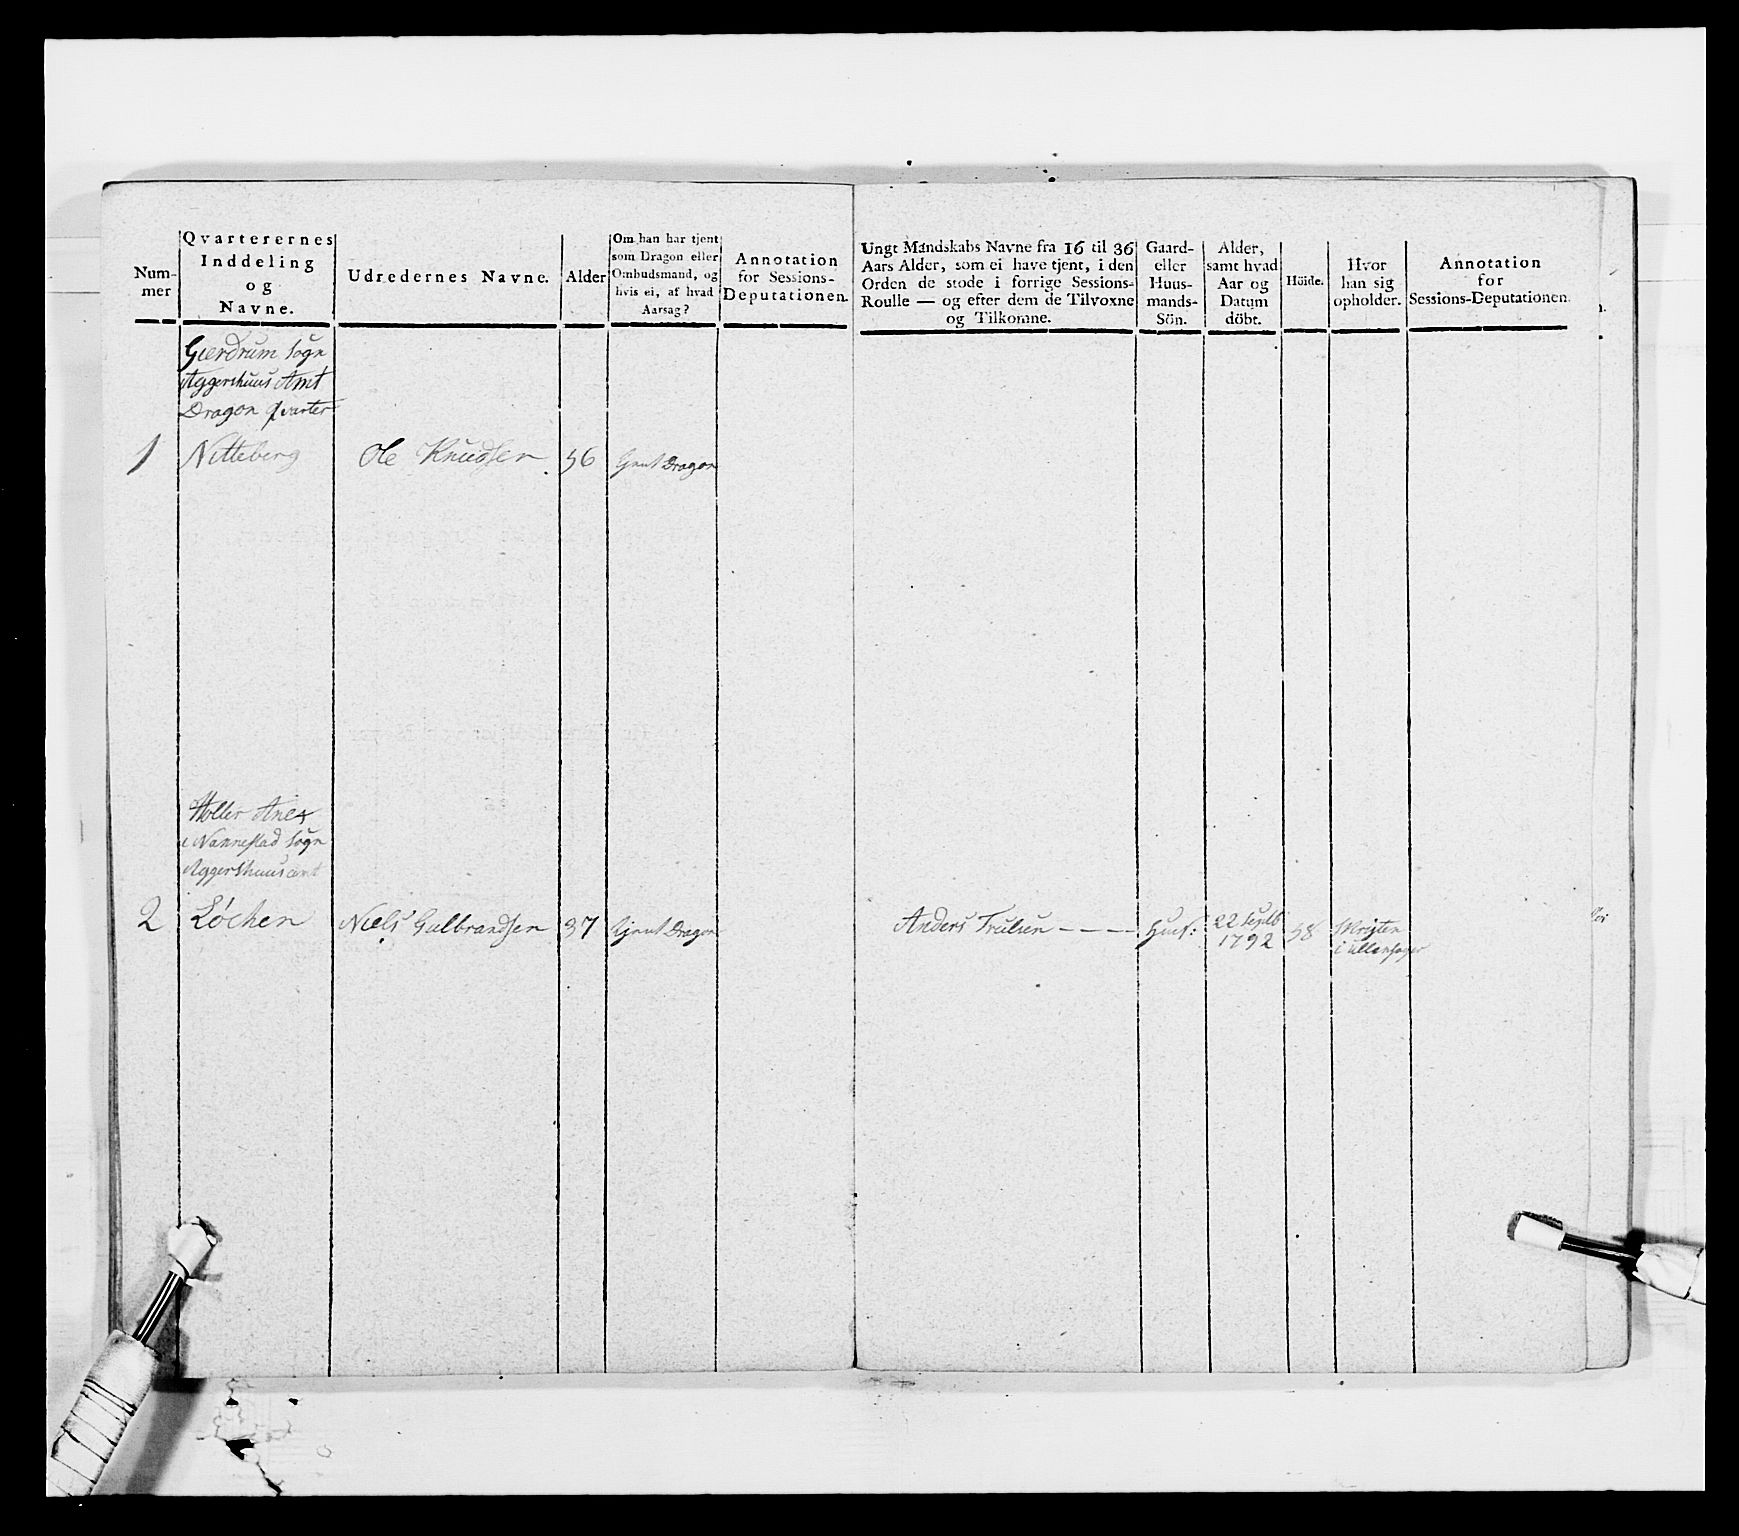 Num-
mer
Qvarterernes
Inddeling
og
Navne.
Udredernes Navne.
Alder
Om han har tjent
som Dragon eller
Ombudsmand, og
hvis ei, af hvad
Aarsag?
Annotation
for Sessions-
Deputationen.
Ungt Mandskabs Navne fra 16 til 36
Aars Alder, som ei have tjent, i den
Orden de stode i forrige Sessions-
Roulle — og efter dem de Tilvoxne
og Tilkomne.
Gaard-
eller
Huus-
mands-
Sön.
Alder,
samt hvad
Aar og
Datum
döbt.
Höide.
Hvor
han sig
opholder.
Annotation
for
Sessions-Deputationen.
Gierdrum Sogn
Aggershuus Amt
Dragon qvarter
1 Nitteberg Ole Knudsen 56 Dragon
Holter Anex
i Nannestad Sogn
Aggershuus amt
2 Løchen Niels Gulbrandsen 37 Dragon Anders Trulsen - - - - Huus: 22 Septb 58
1792 i Ullensager